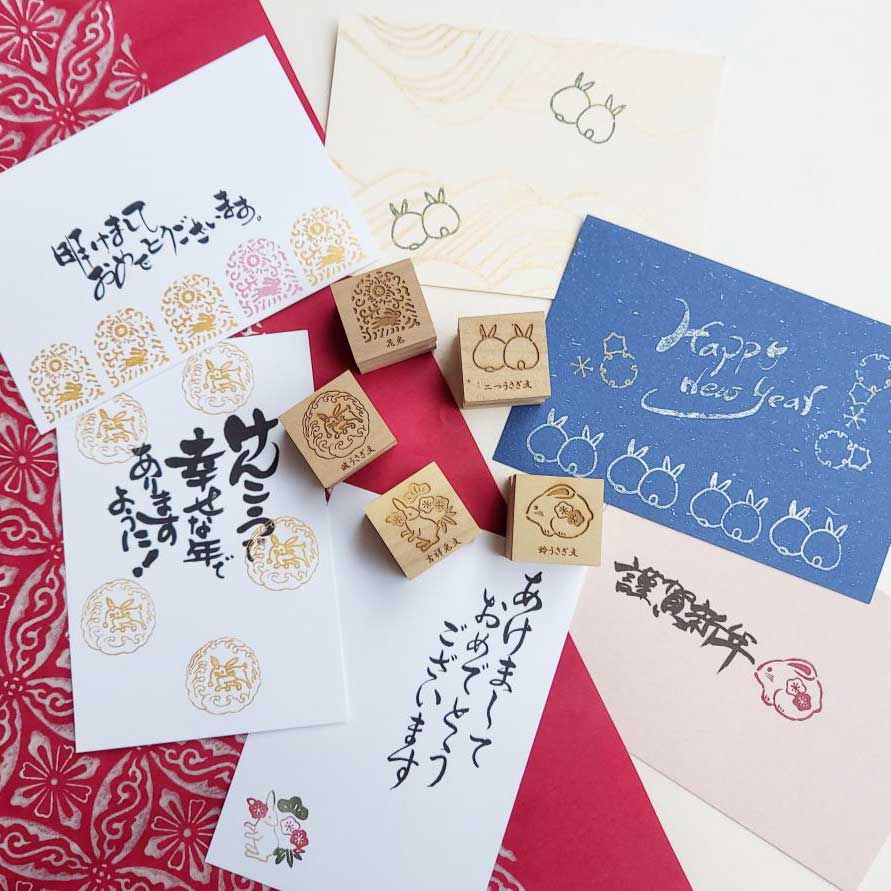 明けまして
おめでとうございます。
Happy
New Year
花兎
二つうさぎ文
波うさぎ文
吉祥兎文
鈴うさぎ文
けんこうで
幸せな年で
あります
ように!
謹賀新年
あけまして
おめでとう
ございます